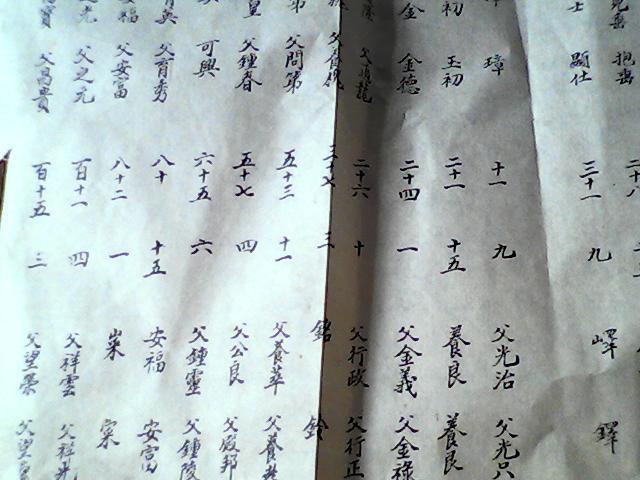 二十八
士 顯仕 三十一 九 嶧 鐸
璋 十一 九 父光治 父光只
初 玉初 二十一 十五 養良 養良
金 金德 二十四 一 父金義 父金祿
二十六 十 父行政 父行正
三十七 三 銘 鈴
第 父問第 五十三 十一 父養萃 父養
皇 父鍾春 五十七 四 父公良 父殿邦
可興 六十五 六 父鍾靈 父鍾陵
興 父育秀 八十 十五 安福 安富
福 父安富 八十二 一 寀
元 父之元 百十一 四 父祥雲 父祥光
貴 父昌貴 百十五 三 父望榮 父望